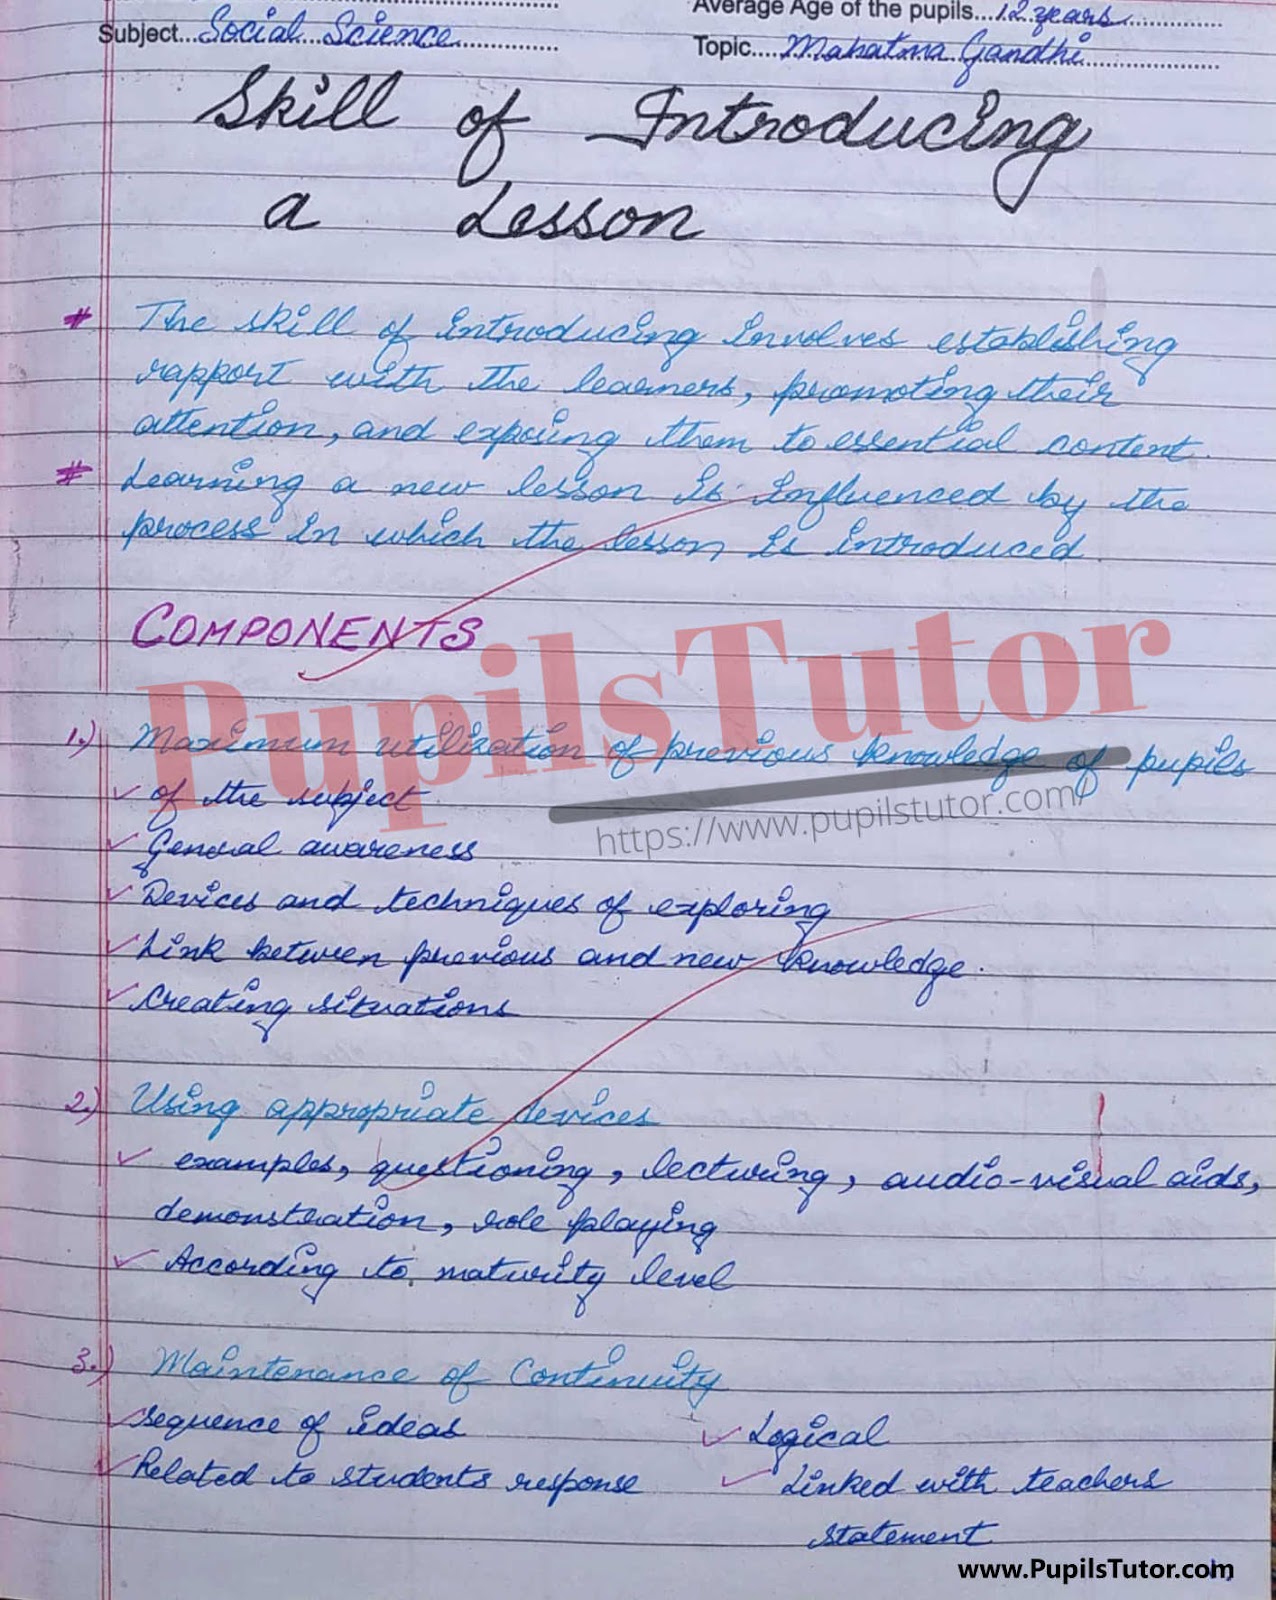 Average Age of the pupils....12 years
Subject...Social Science
Topic....Mahatma Gandhi
Skill of Introducing
a Lesson
# The skill of introducing involves establishing
rapport with the learners, promoting their
attention, and exposing them to essential content.
# Learning a new lesson is influenced by the
process in which the lesson is introduced
COMPONENTS
PupilsTutor
1.) Maximum utilization of previous knowledge of pupils
✓ of the subject
https://www.pupilstutor.com/
✓ General awareness
✓ Devices and techniques of exploring
✓ Link between previous and new knowledge.
✓ Creating situations
2.) Using appropriate devices
✓ examples, questioning, lecturing, audio-visual aids,
demonstration, role playing
✓ According to maturity level
3.) Maintenance of Continuity
✓ Sequence of ideas ✓ Logical
✓ Related to students response ✓ Linked with teachers
statement
www.PupilsTutor.com